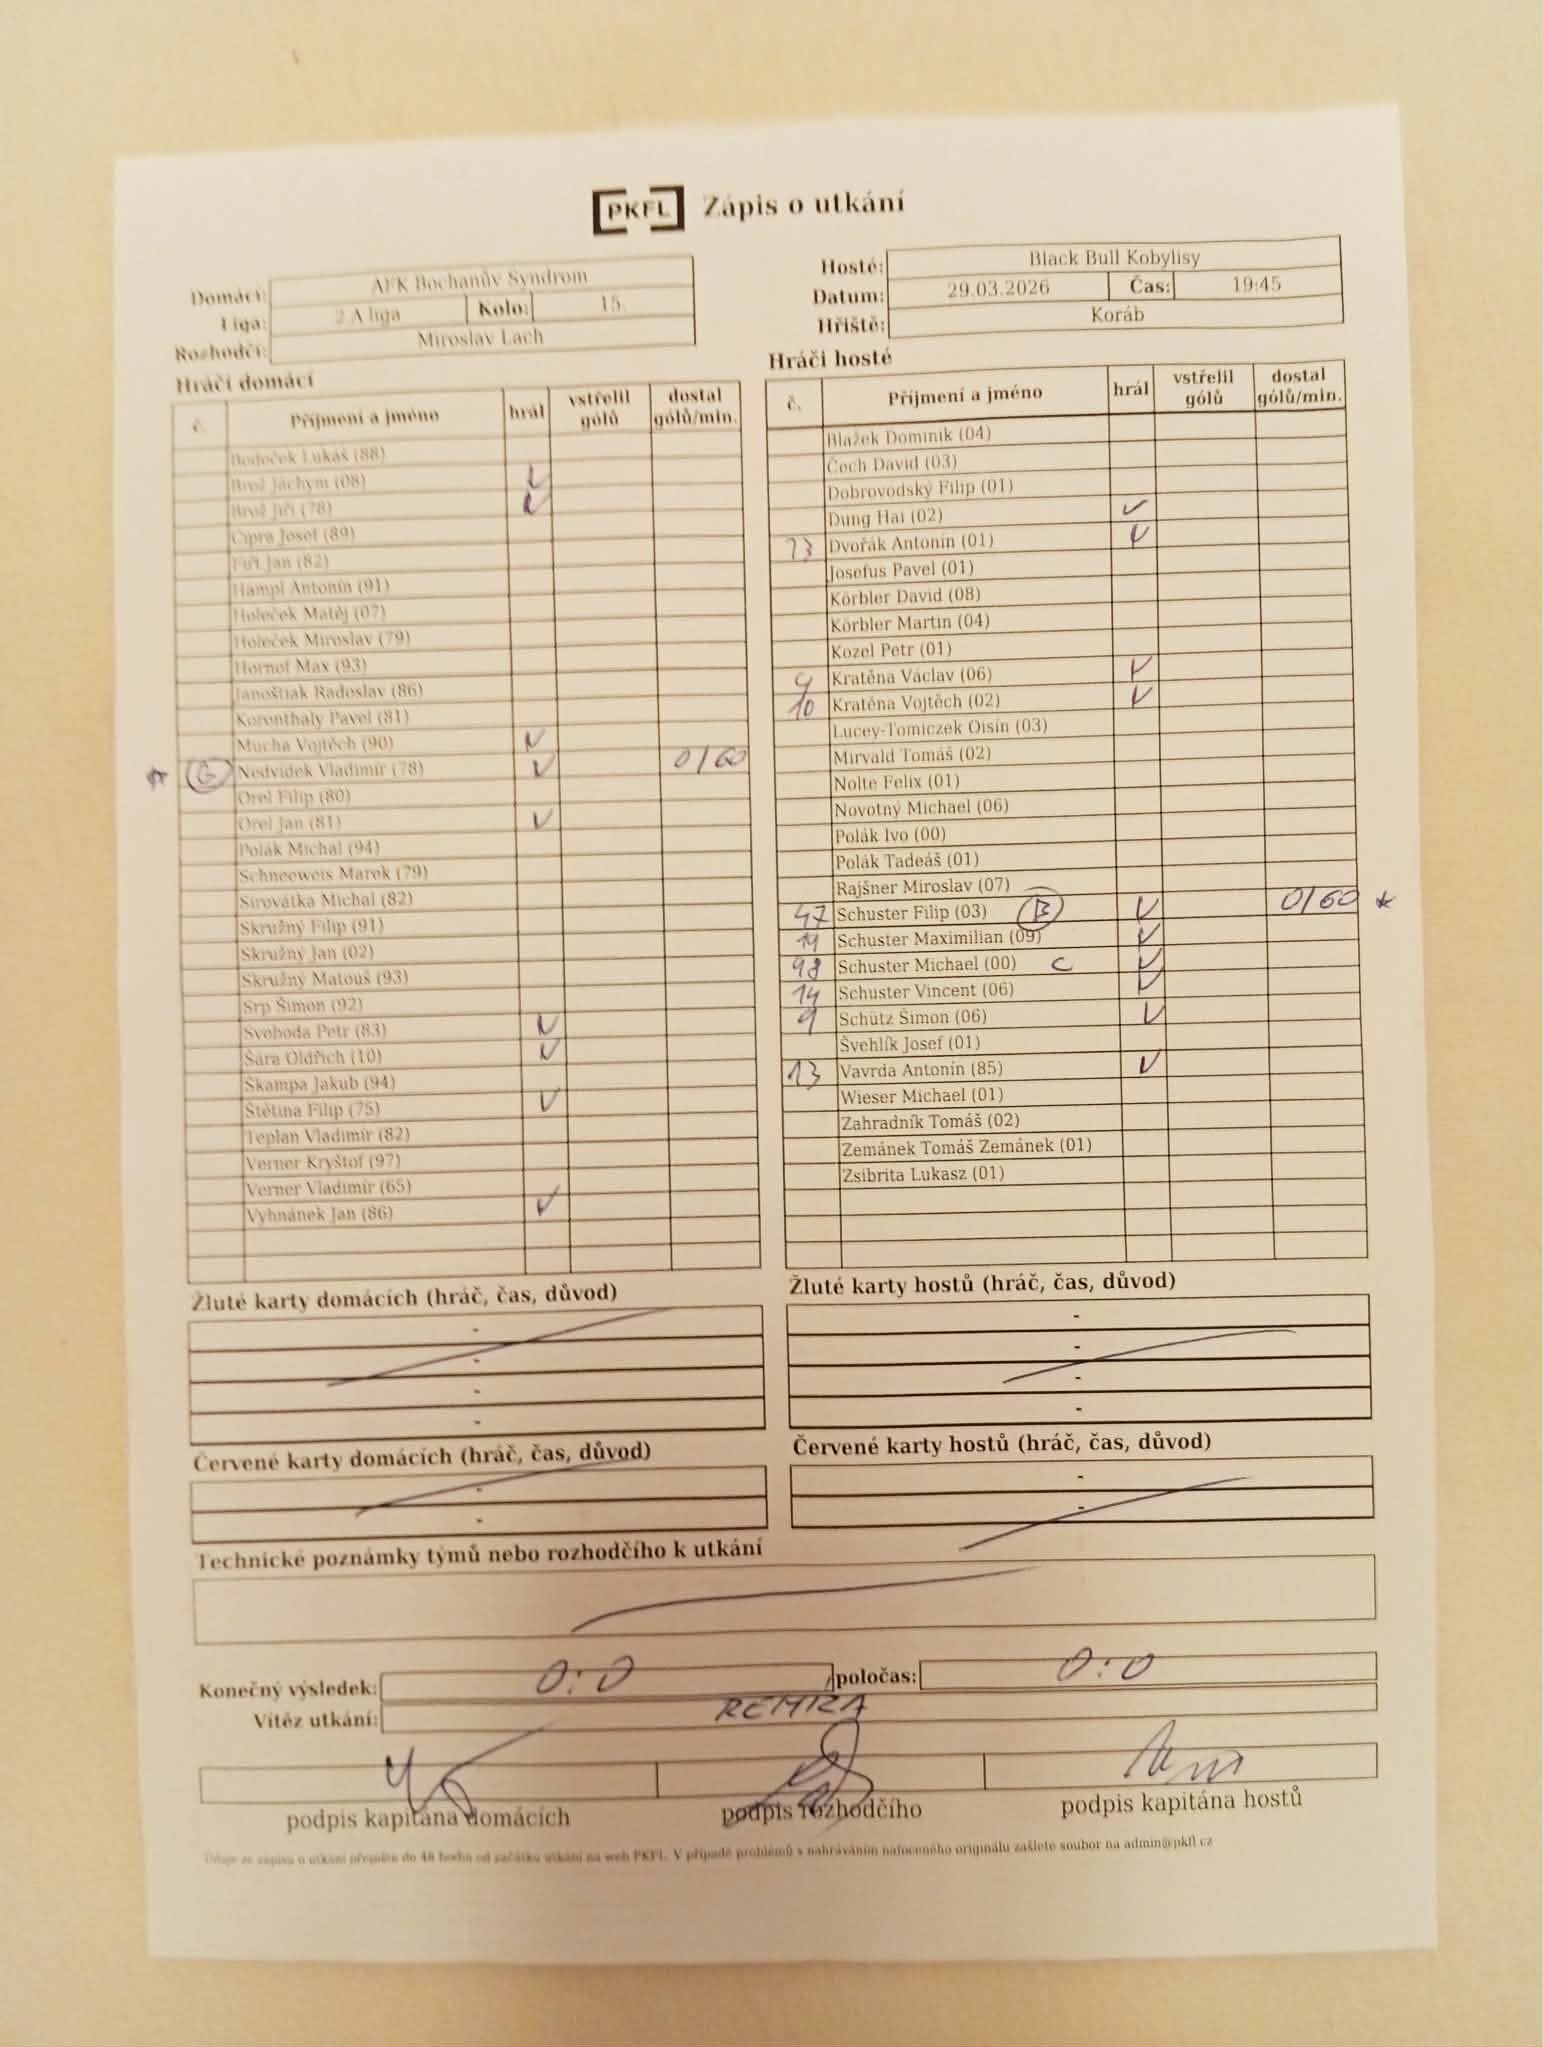 PKFL Zápis o utkání
Domácí: AFK Bochanův Syndrom
Liga: 2 A liga Kolo: 15.
Rozhodčí: Miroslav Lach
Hosté: Black Bull Kobylisy
Datum: 29.03.2026 Čas: 19:45
Hřiště: Koráb
Hráči domácí
č. Příjmení a jméno hrál vstřelil gólů dostal gólů/min.
Bedeček Lukáš (88)
Brož Jáchym (08) ✓
Brož Jiří (78) ✓
Cipra Josef (89)
Fürt Jan (82)
Hampl Antonín (91)
Holeček Matěj (07)
Holeček Miroslav (79)
Hornof Max (93)
Janoštiak Radoslav (86)
Koronthaly Pavel (81)
Mucha Vojtěch (90) ✓
* G Nedvídek Vladimír (78) ✓ 0/60
Orel Filip (80)
Orel Jan (81) ✓
Polák Michal (94)
Schneeweis Marek (79)
Sirovátka Michal (82)
Skružný Filip (91)
Skružný Jan (02)
Skružný Matouš (93)
Srp Šimon (92)
Svoboda Petr (83) ✓
Šára Oldřich (10) ✓
Škampa Jakub (94)
Štětina Filip (75) ✓
Teplan Vladimír (82)
Verner Kryštof (97)
Verner Vladimír (65)
Vyhnánek Jan (86) ✓
Hráči hosté
č. Příjmení a jméno hrál vstřelil gólů dostal gólů/min.
Blažek Dominik (04)
Čech David (03)
Dobrovodský Filip (01)
Dung Hai (02) ✓
Dvořák Antonín (01) ✓
Josefus Pavel (01)
Körbler David (08)
Körbler Martin (04)
Kozel Petr (01)
9 Kratěna Václav (06) ✓
10 Kratěna Vojtěch (02) ✓
Lucey-Tomiczek Oisín (03)
Mirvald Tomáš (02)
Nolte Felix (01)
Novotný Michael (06)
Polák Ivo (00)
Polák Tadeáš (01)
Rajšner Miroslav (07)
47 Schuster Filip (03) B ✓ 0/60 *
19 Schuster Maximilian (09) ✓
98 Schuster Michael (00) C ✓
14 Schuster Vincent (06) ✓
9 Schütz Šimon (06) ✓
Švehlík Josef (01)
13 Vavrda Antonín (85) ✓
Wieser Michael (01)
Zahradník Tomáš (02)
Zemánek Tomáš Zemánek (01)
Zsibrita Lukasz (01)
Žluté karty domácích (hráč, čas, důvod)
-
-
-
-
Žluté karty hostů (hráč, čas, důvod)
-
-
-
-
Červené karty domácích (hráč, čas, důvod)
-
-
Červené karty hostů (hráč, čas, důvod)
-
-
Technické poznámky týmů nebo rozhodčího k utkání
Konečný výsledek: 0:0 poločas: 0:0
Vítěz utkání: REMÍZA
podpis kapitána domácích podpis rozhodčího podpis kapitána hostů
Údaje ze zápisu o utkání přepište do 48 hodin od začátku utkání na web PKFL. V případě problémů s nahráváním nafoceného originálu zašlete soubor na admin@pkfl.cz